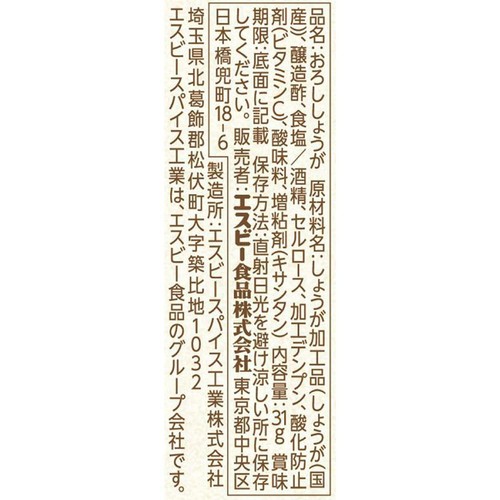 品名:おろししょうが 原材料名:しょうが加工品(しょうが(国
産)、醸造酢、食塩/酒精、セルロース、加工デンプン、酸化防止
剤(ビタミンC)、酸味料、増粘剤(キサンタン) 内容量:31g 賞味
期限:底面に記載 保存方法:直射日光を避け涼しい所に保存
してください。 販売者:エスビー食品株式会社 東京都中央区
日本橋兜町18-6 製造所:エスビースパイス工業株式会社
埼玉県北葛飾郡松伏町大字築比地1032
エスビースパイス工業は、エスビー食品のグループ会社です。